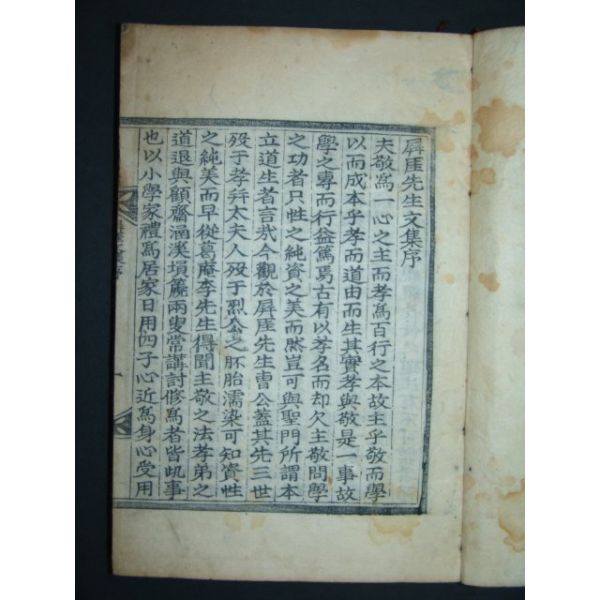 屛厓先生文集序
夫敬爲一心之主而孝爲百行之本故主乎敬而學
以而成本乎孝而道由而生其實孝與敬是一事故
學之專而行益篤焉古有以孝名而却欠主敬問學
之功者只性之純資之美而然豈可與聖門所謂本
立道生者言哉今觀於屛厓先生曺公蓋其先三世
歿于孝幷太夫人歿于烈公之胚胎濡染可知資性
之純美而早從葛庵李先生得聞主敬之法孝弟之
道退與顧齋涵溪塤篪兩叟常講討修爲者皆此事
也以小學家禮爲居家日用四子心近爲身心受用